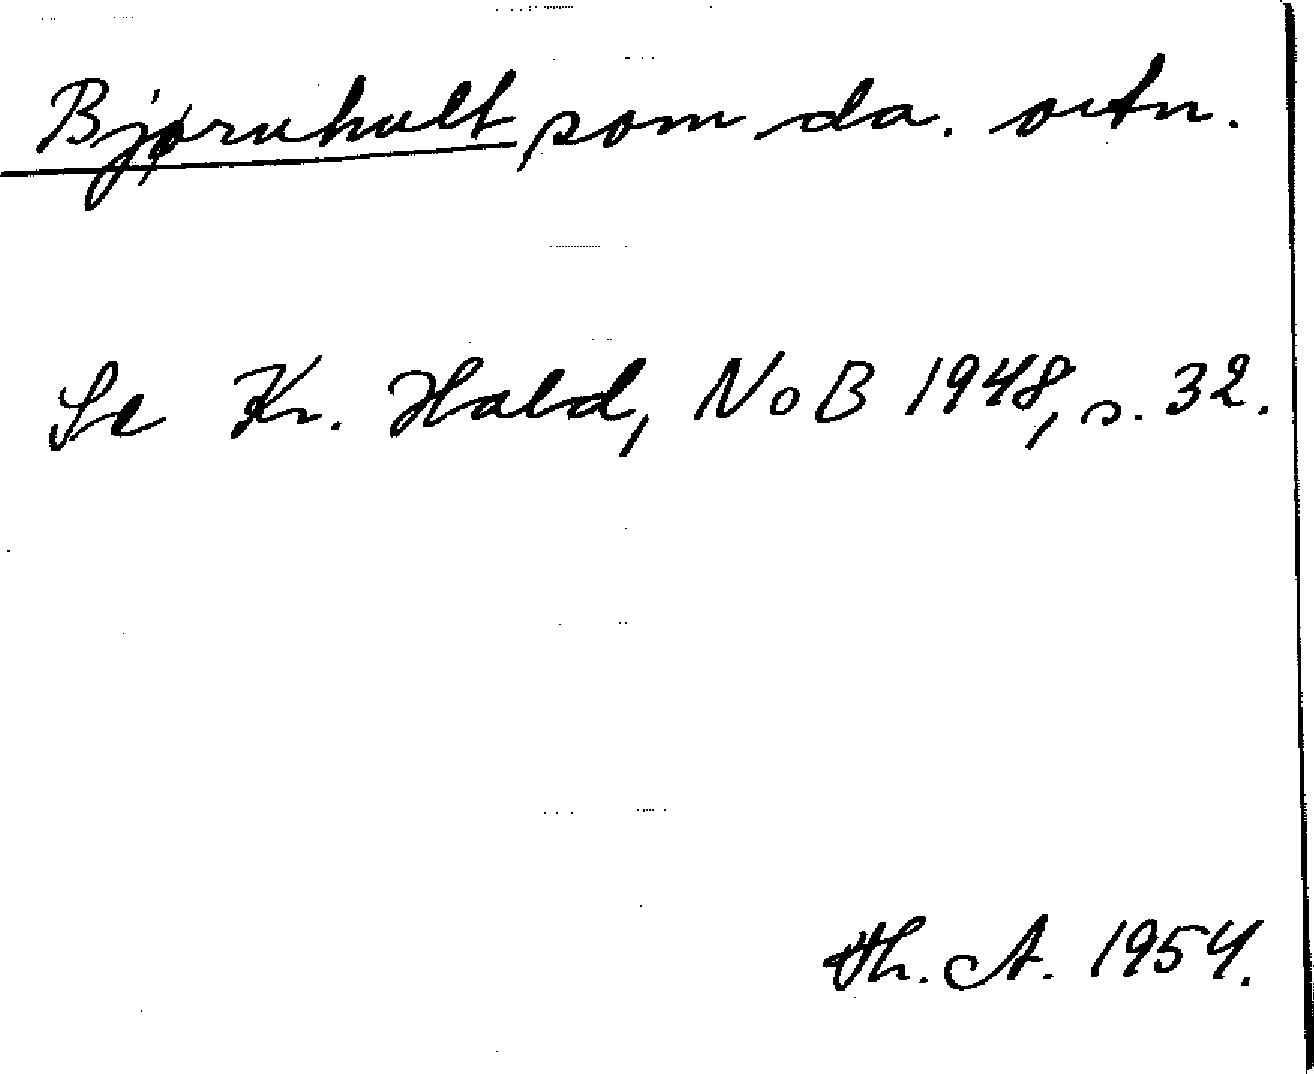 Bjørnhult som da. ortn.
Se Kr. Hald, NoB 1948, s. 32.
Th. A. 1954.